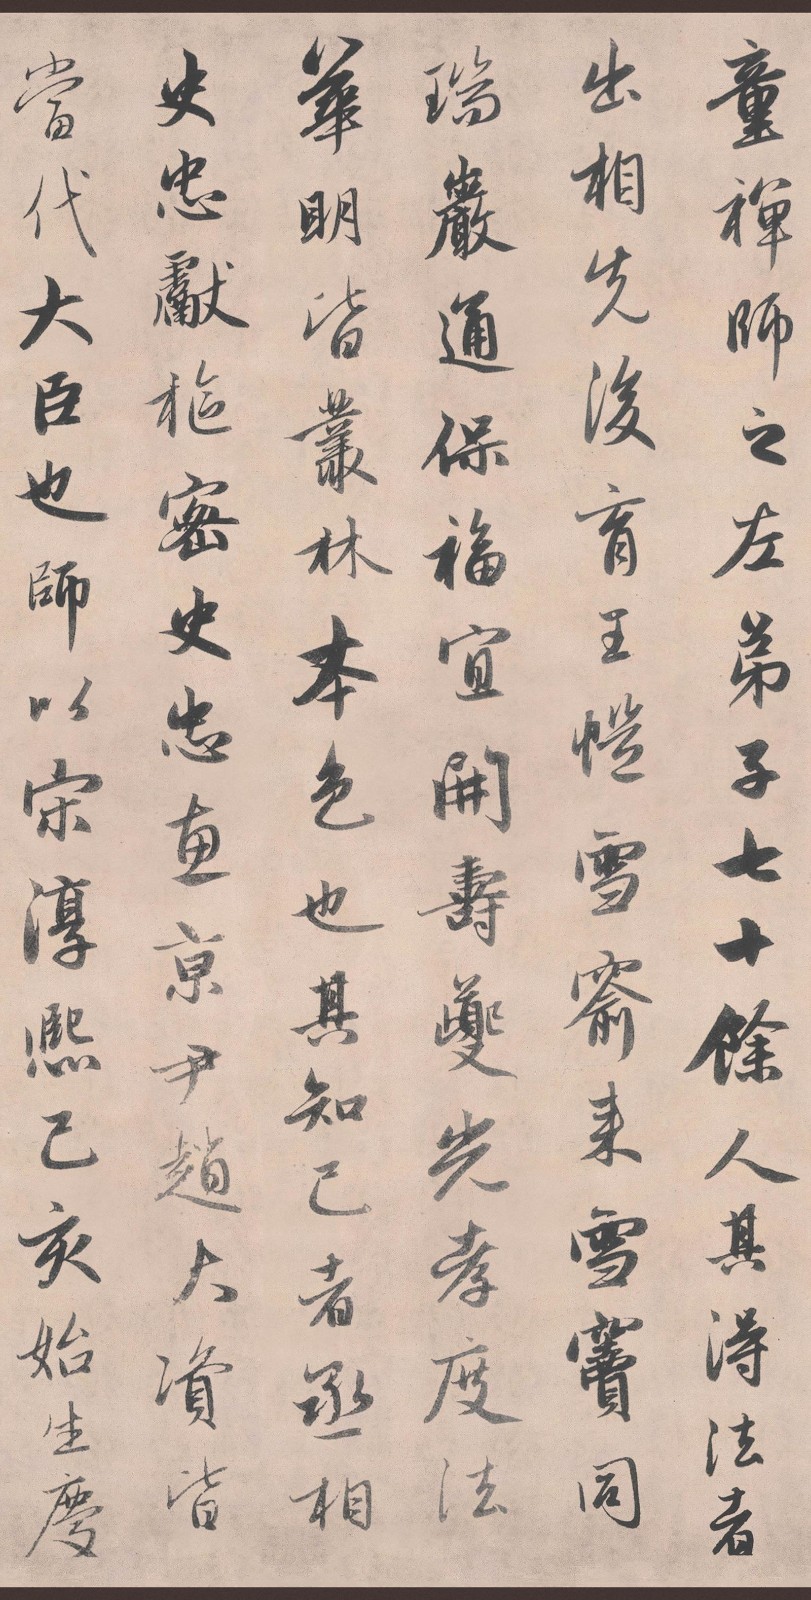 童禪師之左弟子七十餘人其得法者
出相先後育王愷雪窬来雪竇同
瑞巖通保福宜開壽夔光孝度法
華明皆叢林本色也其知己者丞相
史忠獻樞密史忠宣京尹趙大資皆
當代大臣也師以宋淳熙己亥始生慶